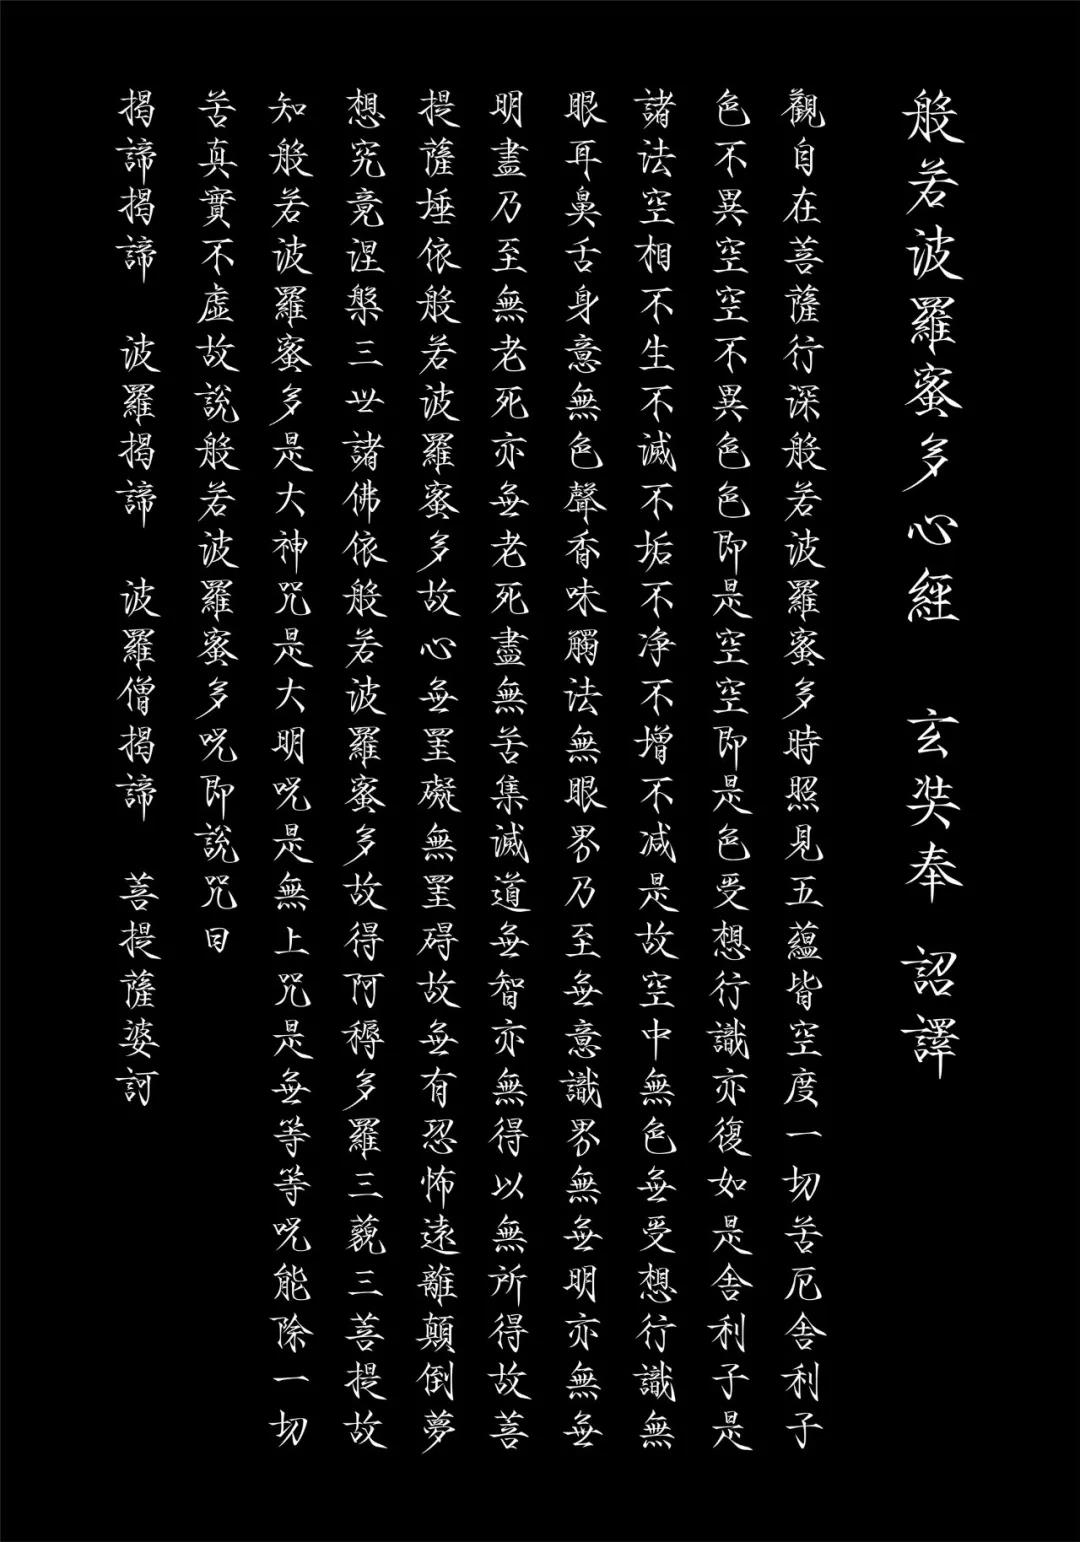 般若波羅蜜多心經 玄奘奉 詔譯
觀自在菩薩行深般若波羅蜜多時照見五蘊皆空度一切苦厄舍利子
色不異空空不異色色即是空空即是色受想行識亦復如是舍利子是
諸法空相不生不滅不垢不净不增不减是故空中無色無受想行識無
眼耳鼻舌身意無色聲香味觸法無眼界乃至無意識界無無明亦無無
明盡乃至無老死亦無老死盡無苦集滅道無智亦無得以無所得故菩
提薩埵依般若波羅蜜多故心無罣礙無罣碍故無有恐怖遠離顛倒夢
想究竟涅槃三世諸佛依般若波羅蜜多故得阿耨多羅三藐三菩提故
知般若波羅蜜多是大神咒是大明咒是無上咒是無等等咒能除一切
苦真實不虛故說般若波羅蜜多咒即說咒曰
揭諦揭諦 波羅揭諦 波羅僧揭諦 菩提薩婆訶